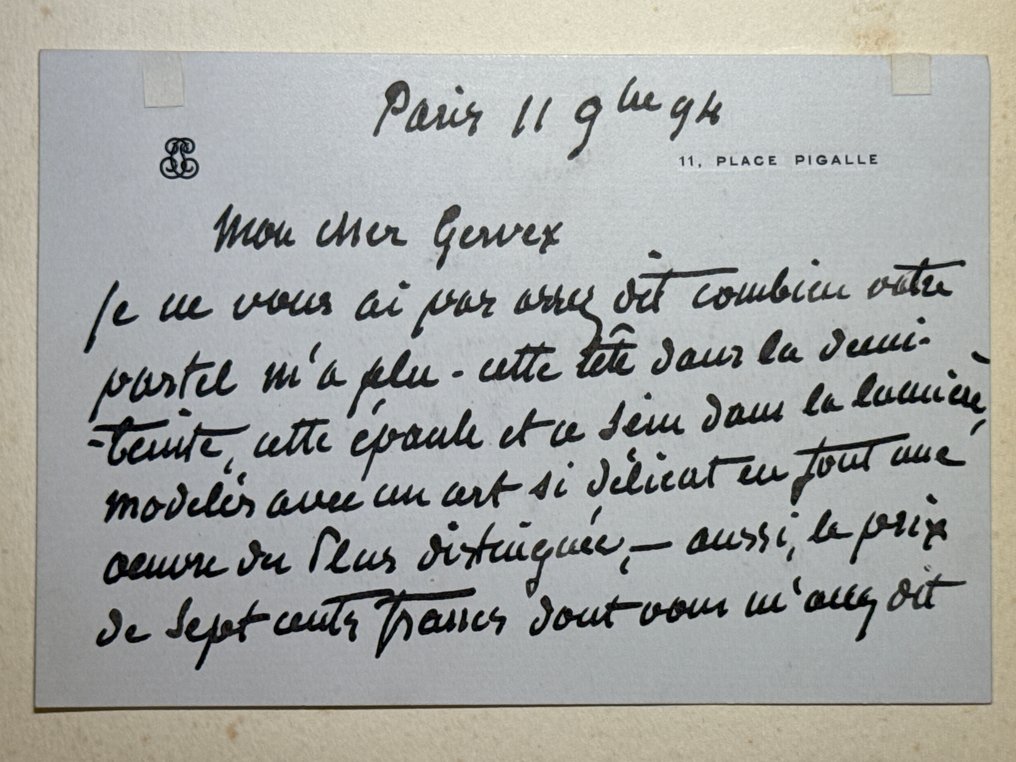 Paris 11 9bre 94
11, PLACE PIGALLE
Mon cher Gervex
Je ne vous ai pas assez dit combien votre
pastel m'a plu - cette tête dans la demi-
-teinte, cette épaule et ce sein dans la lumière,
modelés avec un art si délicat en font une
oeuvre des plus distinguées, — aussi, le prix
de sept cents francs dont vous m'avez dit